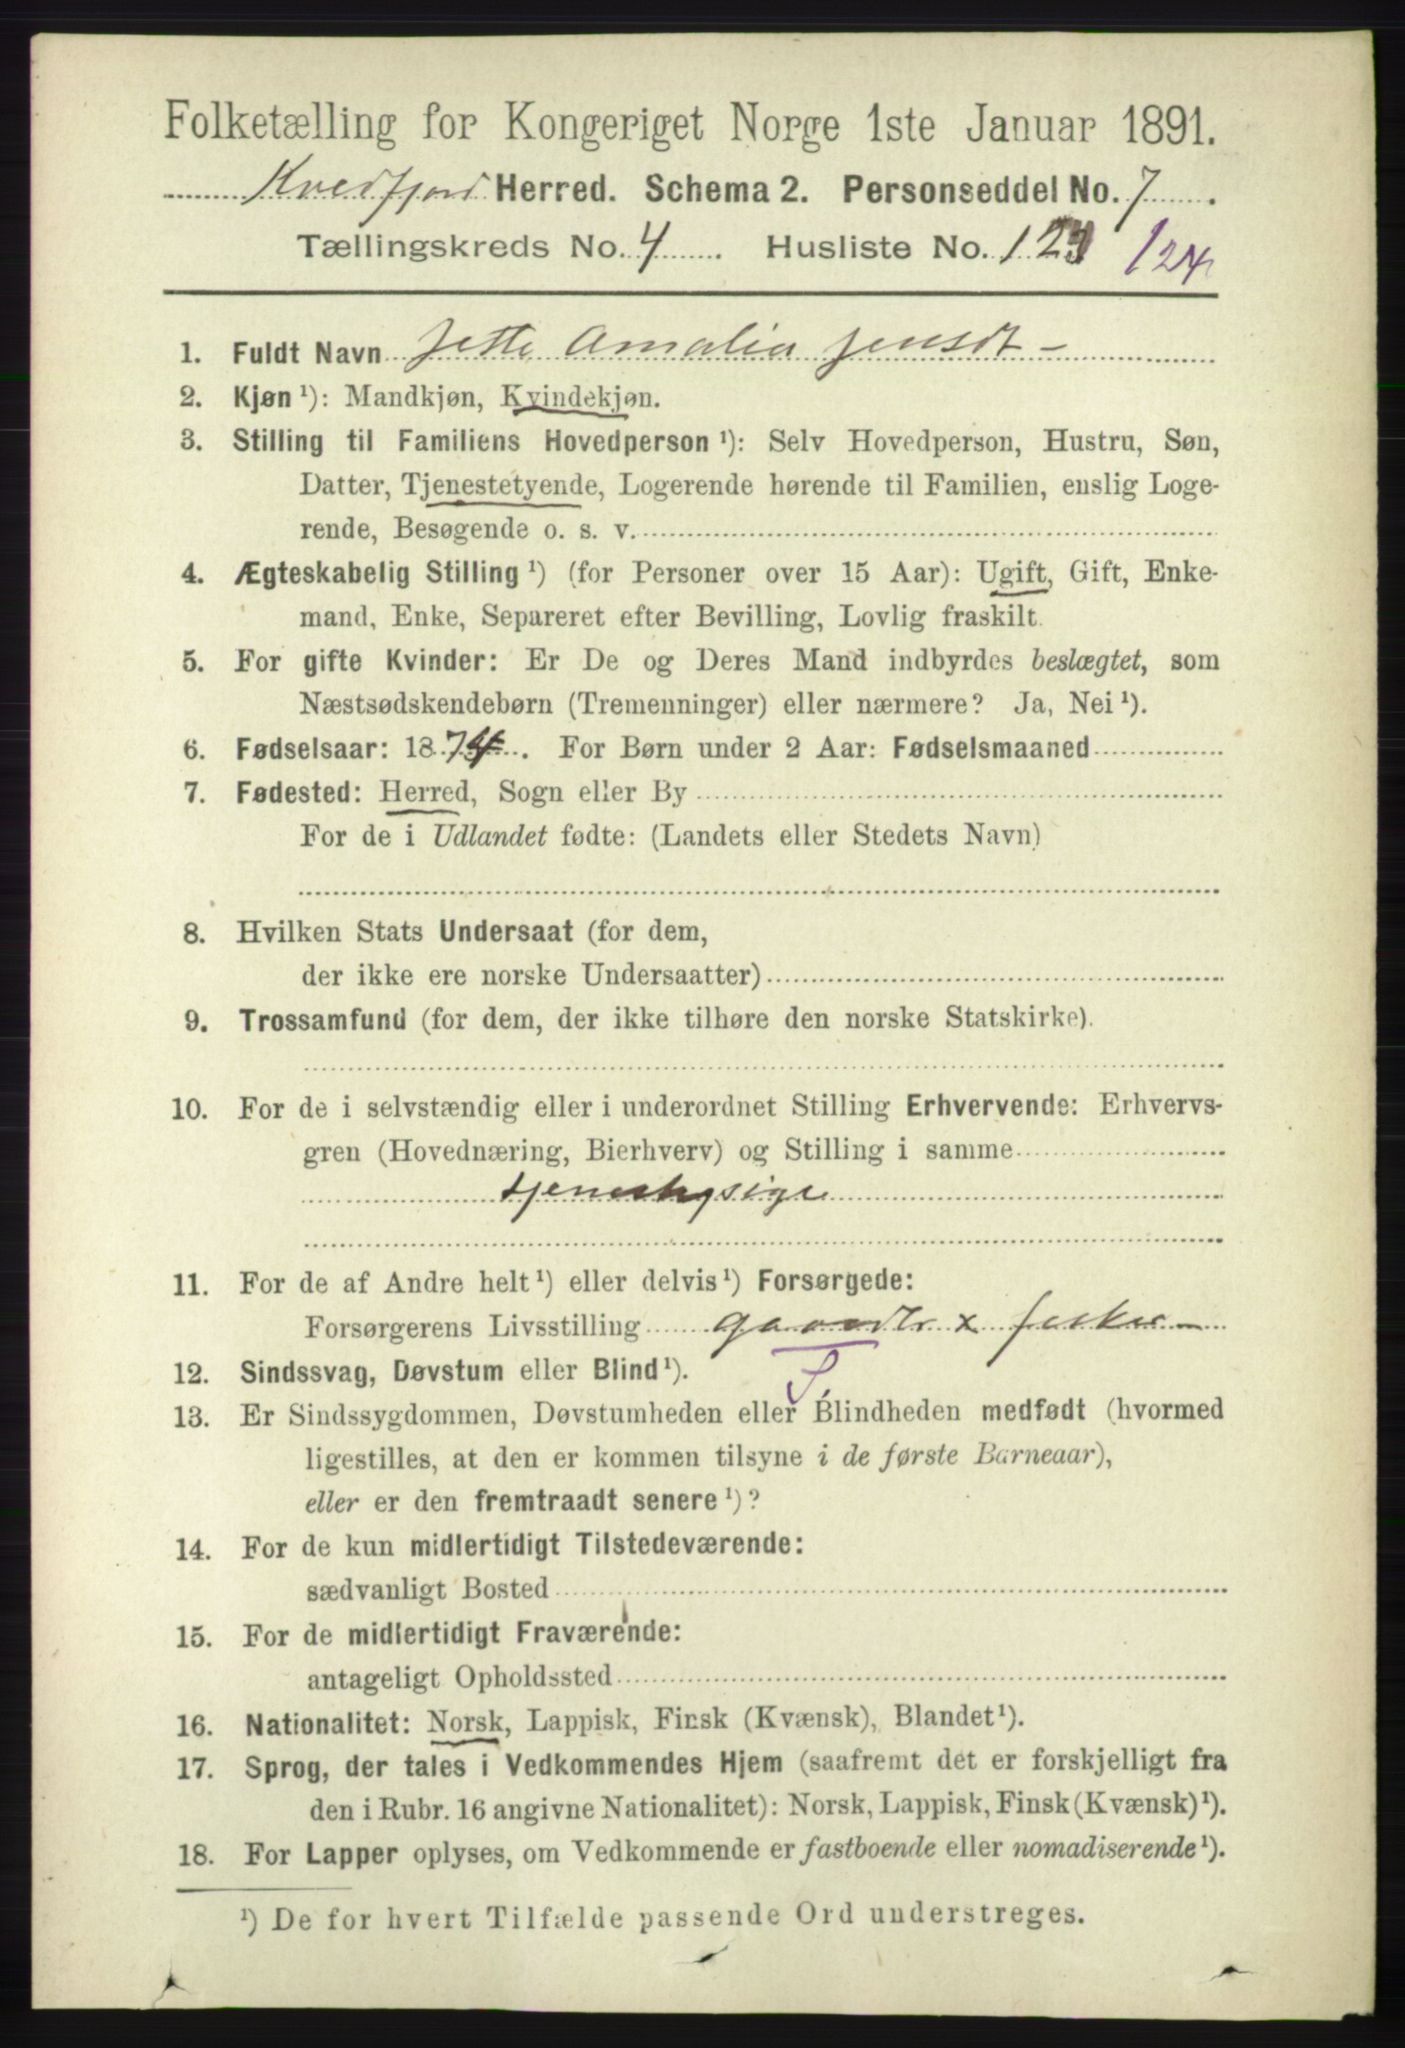 Folketælling for Kongeriget Norge 1ste Januar 1891.
Kvedfjord Herred. Schema 2. Personseddel No. 7.
Tællingskreds No. 4. Husliste No. 123 124
1. Fuldt Navn Jette Amalia Jensdt -
2. Kjøn ¹): Mandkjøn, Kvindekjøn.
3. Stilling til Familiens Hovedperson ¹): Selv Hovedperson, Hustru, Søn,
Datter, Tjenestetyende, Logerende hørende til Familien, enslig Loge-
rende, Besøgende o. s. v.
4. Ægteskabelig Stilling ¹) (for Personer over 15 Aar): Ugift, Gift, Enke-
mand, Enke, Separeret efter Bevilling, Lovlig fraskilt.
5. For gifte Kvinder: Er De og Deres Mand indbyrdes beslægtet, som
Næstsødskendebørn (Tremenninger) eller nærmere? Ja, Nei ¹).
6. Fødselsaar: 1874. For Børn under 2 Aar: Fødselsmaaned
7. Fødested: Herred, Sogn eller By
For de i Udlandet fødte: (Landets eller Stedets Navn)
8. Hvilken Stats Undersaat (for dem,
der ikke ere norske Undersaatter)
9. Trossamfund (for dem, der ikke tilhøre den norske Statskirke).
10. For de i selvstændig eller i underordnet Stilling Erhvervende: Erhvervs-
gren (Hovednæring, Bierhverv) og Stilling i samme
11. For de af Andre helt ¹) eller delvis ¹) Forsørgede:
Forsørgerens Livsstilling x
12. Sindssvag, Døvstum eller Blind ¹).
13. Er Sindssygdommen, Døvstumheden eller Blindheden medfødt (hvormed
ligestilles, at den er kommen tilsyne i de første Barneaar),
eller er den fremtraadt senere ¹)?
14. For de kun midlertidigt Tilstedeværende:
sædvanligt Bosted
15. For de midlertidigt Fraværende:
antageligt Opholdssted
16. Nationalitet: Norsk, Lappisk, Finsk (Kvænsk), Blandet ¹).
17. Sprog, der tales i Vedkommendes Hjem (saafremt det er forskjelligt fra
den i Rubr. 16 angivne Nationalitet): Norsk, Lappisk, Finsk (Kvænsk) ¹).
18. For Lapper oplyses, om Vedkommende er fastboende eller nomadiserende ¹).
¹) De for hvert Tilfælde passende Ord understreges.